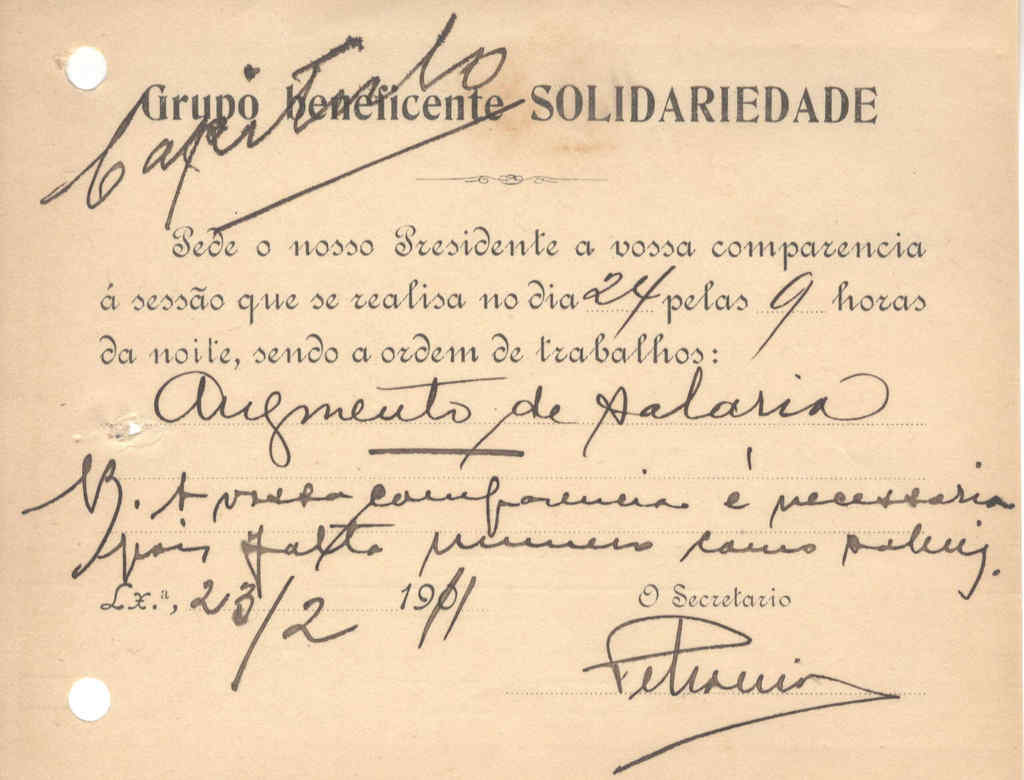 Capitulo
Grupo beneficente SOLIDARIEDADE
Pede o nosso Presidente a vossa comparencia
á sessão que se realisa no dia 24 pelas 9 horas
da noite, sendo a ordem de trabalhos:
Augmento de salario
NB. A vossa comparencia é necessaria
pois falta numero como sabeis.
Lx.ª, 23/2 1911 O Secretario
Petronio